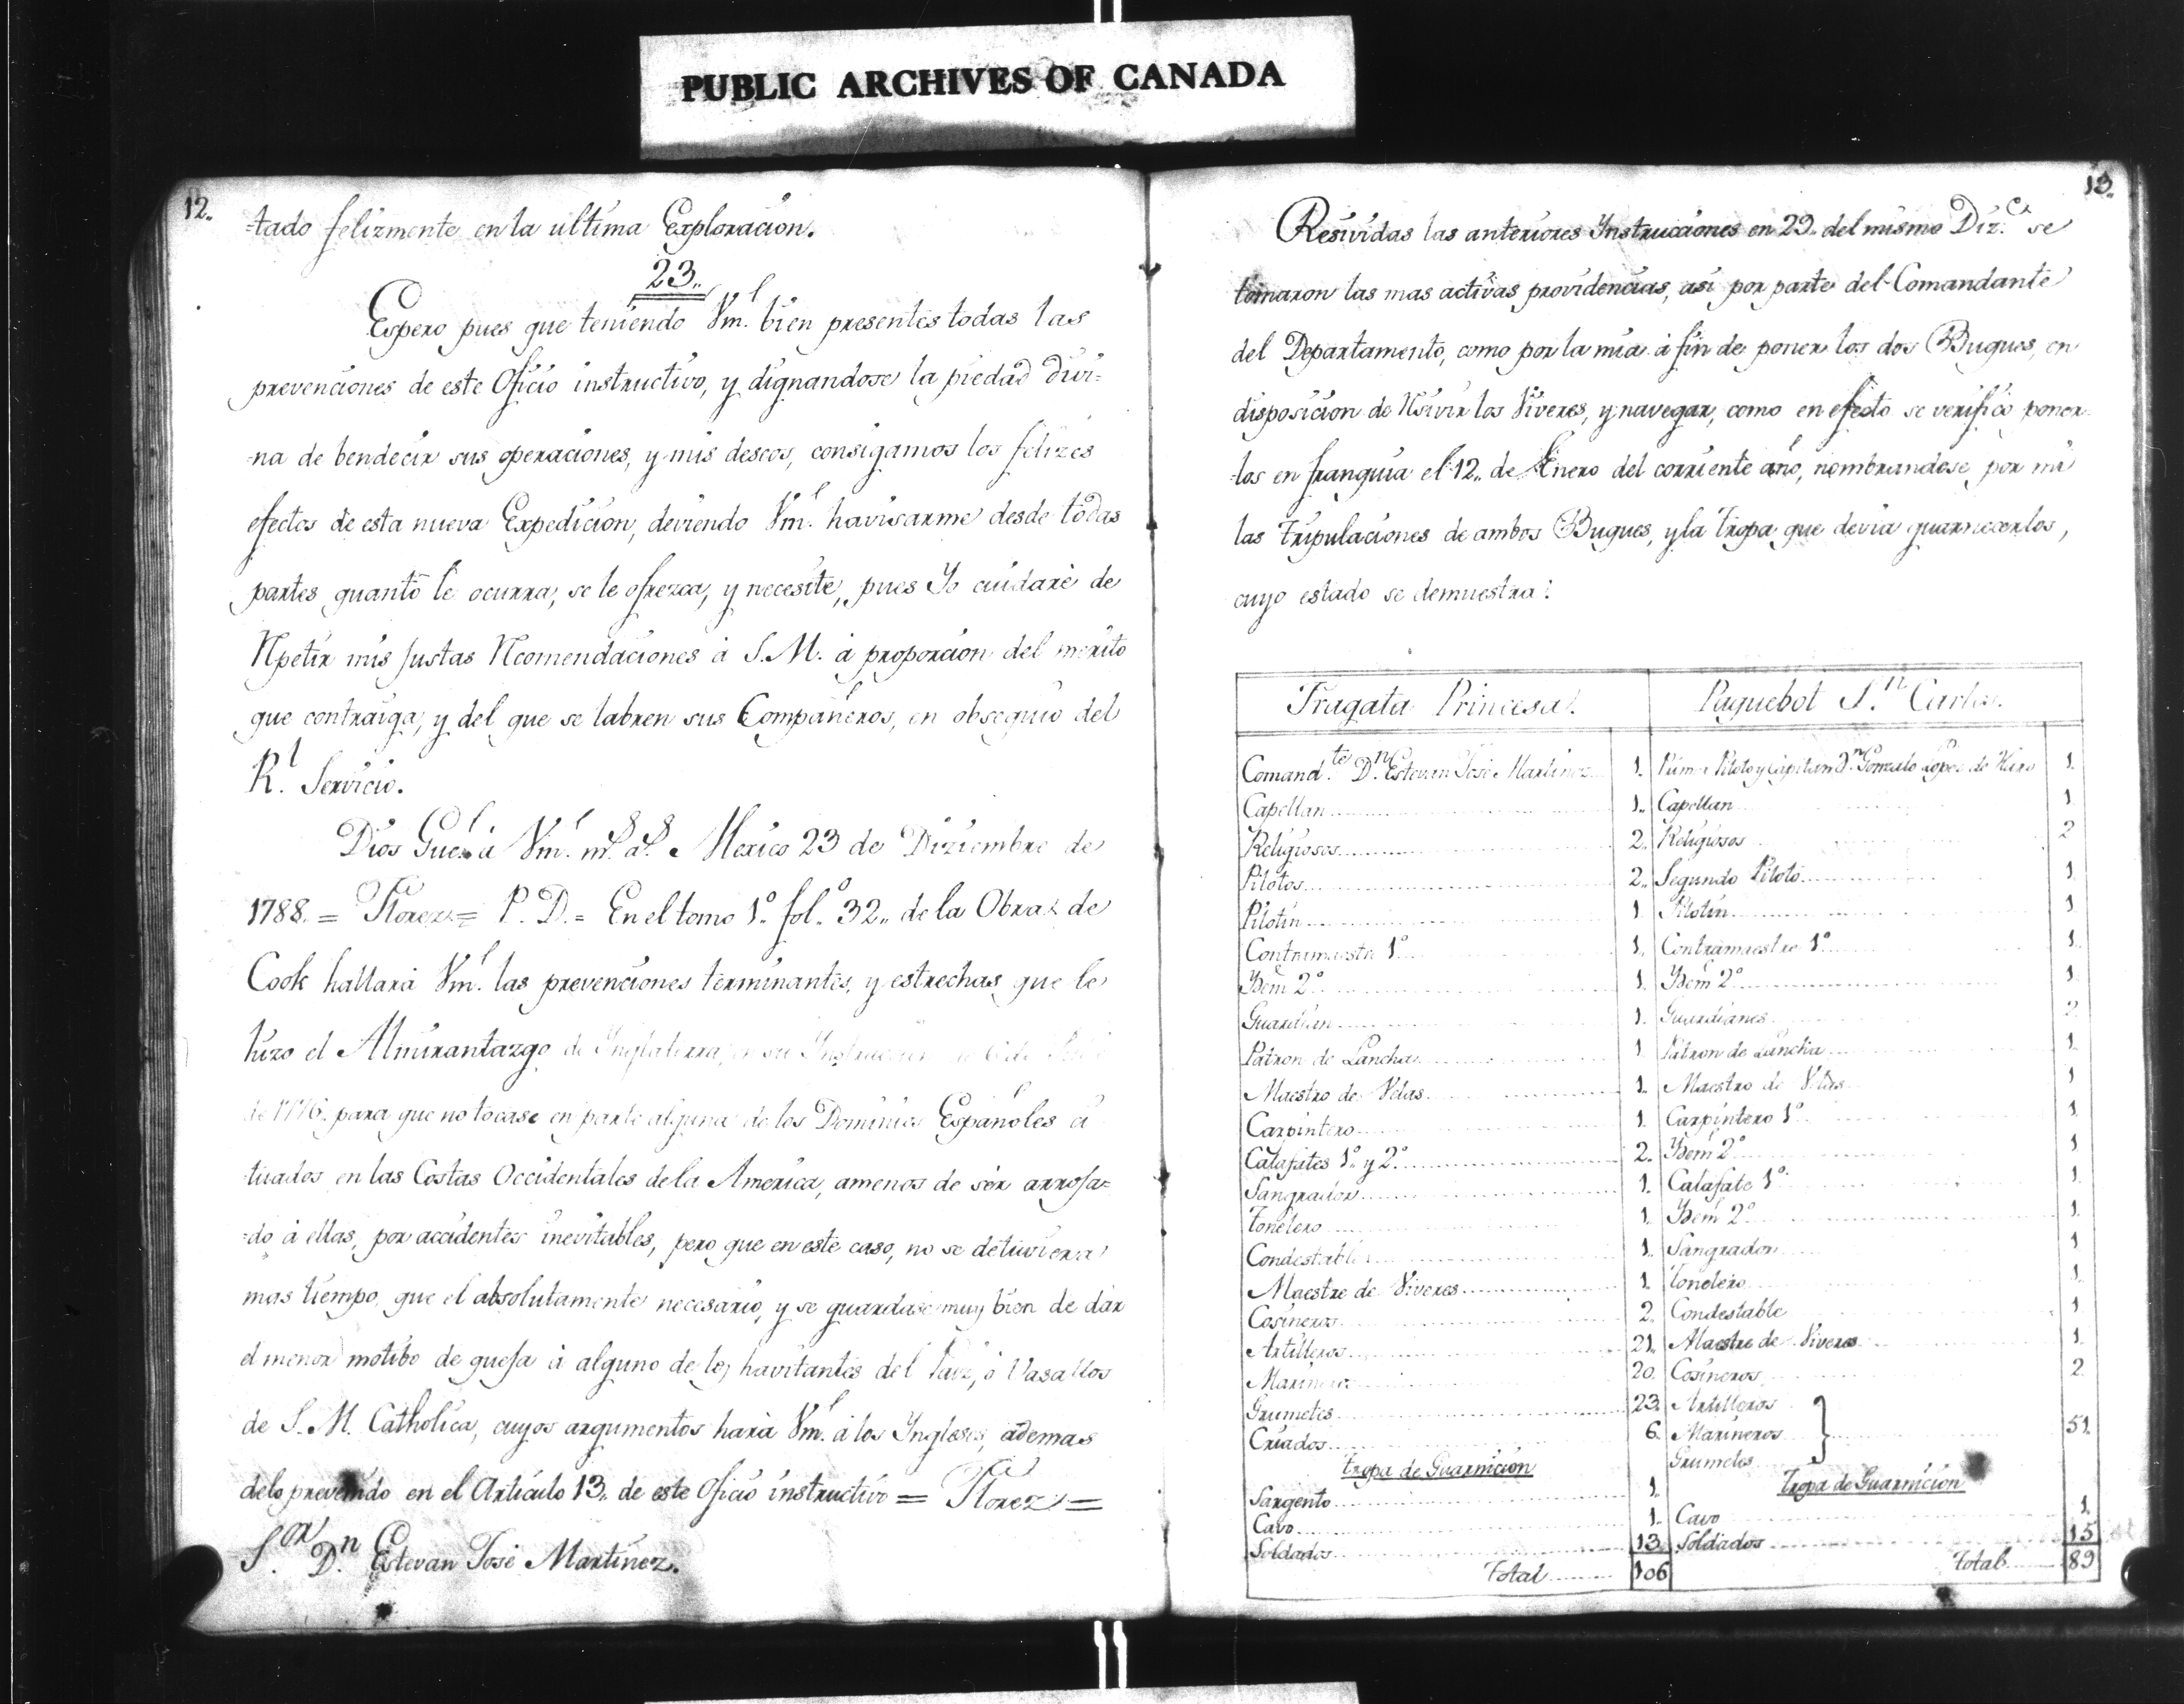 PUBLIC ARCHIVES OF CANADA
12.
-tado felizmente en la ultima Exploracion.
23.
Espero pues que teniendo Vm.d bien presentes todas las
prevenciones de este Oficio instructivo, y dignandose la piedad Divi=
-na de bendecir sus operaciones, y mis deseos, consigamos los felizes
efectos de esta nueva Expedicion, deviendo Vm.d havisarme desde todas
partes quanto le ocurra, se le ofrezca, y necesite, pues Yo cuidarè de
Rpetir mis justas Rcomendaciones à S.M. à proporcion del merito
que contraiga, y del que se labren sus Compañeros, en obsequio del
R.l Servicio.
Dios Gue. à Vm.d m.s a.s Mexico 23 de Diziembre de
1788. = Florez = P. D. = En el tomo 1.º fol.º 32,, de la Obra de
Cook hallarà Vm.d las prevenciones terminantes, y estrechas que le
hizo el Almirantazgo de Inglaterra, en su Instruccion de 6 de
de 1776. para que no tocase en parte alguna de los Dominios Españoles si
tuados en las Costas Occidentales de la America, amenos de sér arroja=
=do à ellas, por accidentes inevitables, pero que en este caso, no se detuviera
mas tiempo, que el absolutamente necesario, y se guardase muy bien de dár
el menor motibo de queja à alguno de los havitantes del Paiz, ò Vasallos
de S. M. Catholica, cuyos argumentos harà Vm.d à los Yngleses, ademas
delo prevenido en el Articulo 13,, de este Oficio instructivo = Florez =
S.or D.n Estevan José Martinez.
13.
Resividas las anteriores Ynstrucciones en 29,, del mismo Diz.e se
tomaron las mas activas providencias, asi por parte del Comandante
del Departamento, como por la mia à fin de poner los dos Buques, en
disposicion de Rsivir los Viveres, y navegar, como en efecto se verificò poner-
-los en franquia el 12,, de Enero del corriente año, nombrandose por mi
las Tripulaciones de ambos Buques, y la Tropa que devia guarnecerlos,
cuyo estado se demuestra:
Fragata Princesa. Paquebot S.n Carlos.
Comand.te D.n Estevan José Martinez 1. Primer Piloto y Capitan D.n Gonzalo Lopez de Haro 1.
Capellan 1. Capellan 1
Religiosos 2. Religiosos 2
Pilotos 2. Segundo Piloto 1
Pilotin 1 Pilotin 1
Contramaestre 1.º 1. Contramaestre 1.º 1.
Ydem 2.º 1. Ydem 2.º 1
Guardian 1. Guardianes 2
Patron de Lancha 1 Patron de Lancha 1.
Maestro de Velas 1. Maestro de Velas 1
Carpintero 1. Carpintero 1.º 1
Calafates 1.º y 2.º 2. Ydem 2.º 1
Sangrador 1. Calafate 1.º 1
Tonelero 1. Ydem 2.º 1
Condestable 1. Sangrador 1
Maestre de Viveres 1. Tonelero 1.
Cosineros 2. Condestable 1
Artilleros 21. Maestre de Viveres 1.
Marineros 20. Cosineros 2
Grumetes 23. Artilleros
Criados 6. Marineros 51.
Tropa de Guarnicion Grumetes
Sargento 1. Tropa de Guarnicion
Cavo 1. Cavo 1.
Soldados 13. Soldados 15
Total 106 Total 89